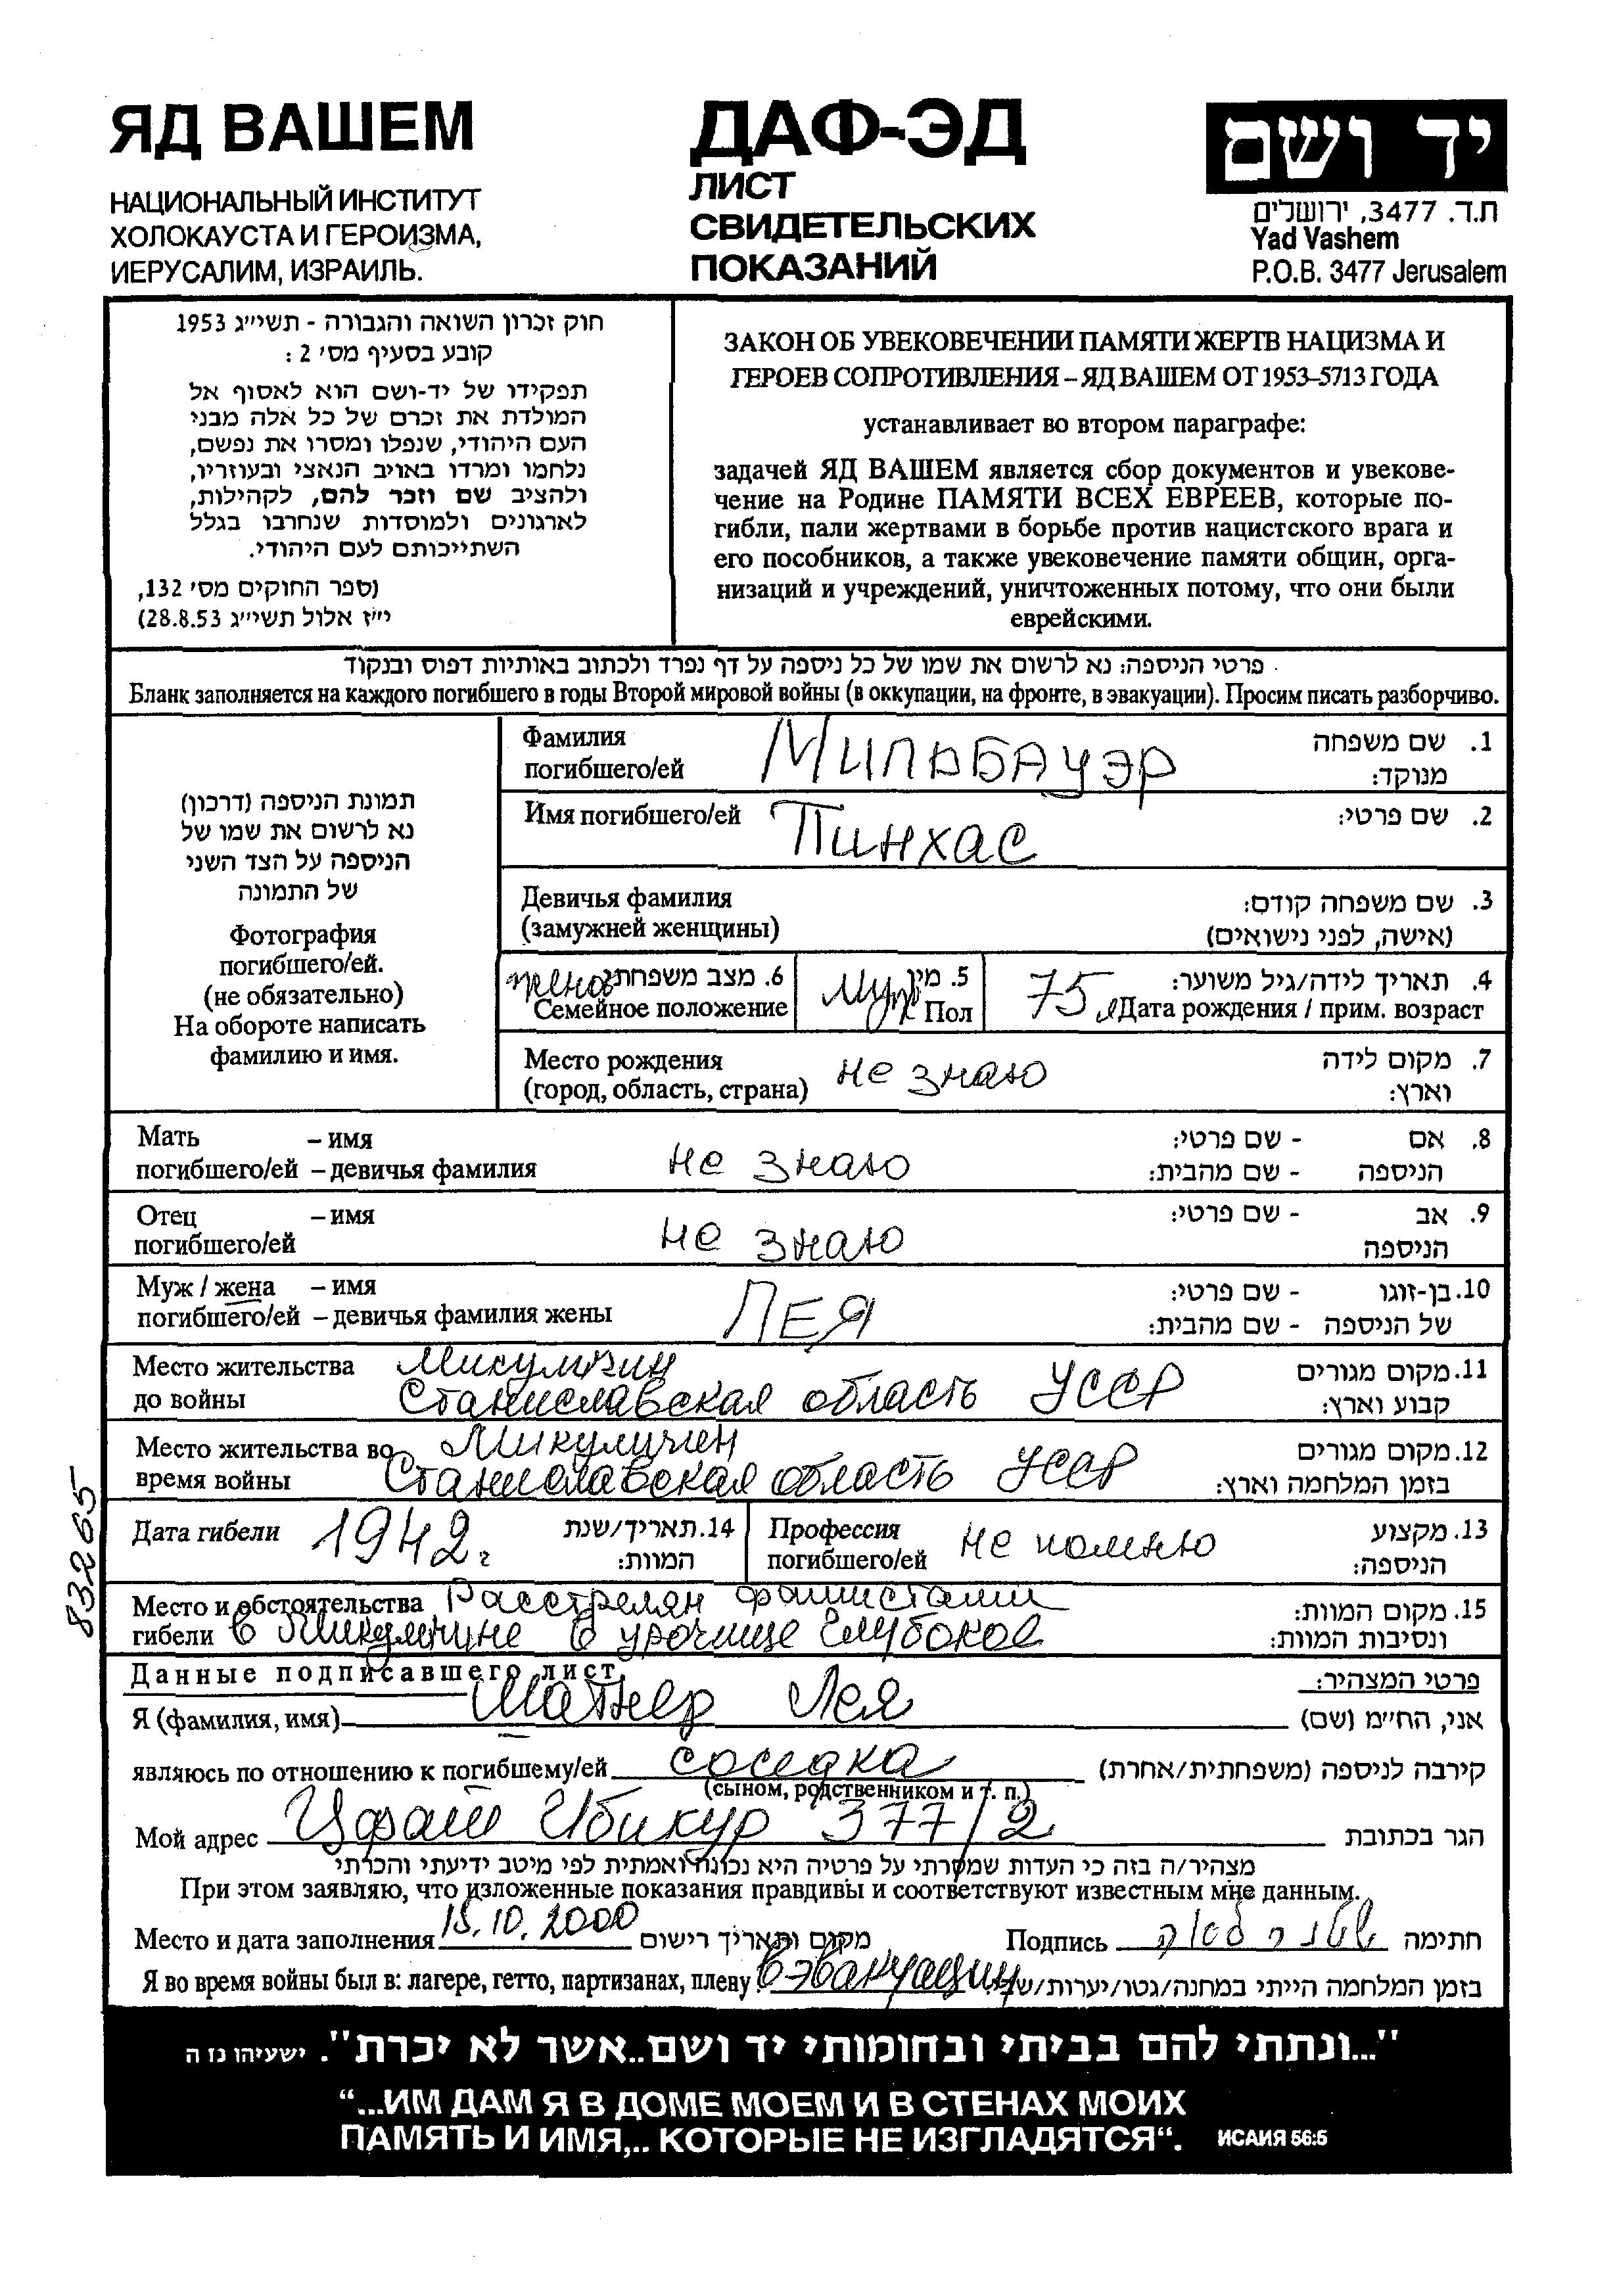 ЯД ВАШЕМ
НАЦИОНАЛЬНЫЙ ИНСТИТУТ
ХОЛОКАУСТА И ГЕРОИЗМА,
ИЕРУСАЛИМ, ИЗРАИЛЬ.
ДАФ-ЭД
ЛИСТ
СВИДЕТЕЛЬСКИХ
ПОКАЗАНИЙ
יד ושם
ת.ד. 3477, ירושלים
Yad Vashem
P.O.B. 3477 Jerusalem
חוק זכרון השואה והגבורה - תשי״ג 1953
קובע בסעיף מס׳ 2 :
תפקידו של יד-ושם הוא לאסוף אל
המולדת את זכרם של כל אלה מבני
העם היהודי, שנפלו ומסרו את נפשם,
נלחמו ומרדו באויב הנאצי ובעוזריו,
ולהציב שם וזכר להם, לקהילות,
לארגונים ולמוסדות שנחרבו בגלל
השתייכותם לעם היהודי.
(ספר החוקים מס׳ 132,
י״ז אלול תשי״ג 28.8.53)
ЗАКОН ОБ УВЕКОВЕЧЕНИИ ПАМЯТИ ЖЕРТВ НАЦИЗМА И
ГЕРОЕВ СОПРОТИВЛЕНИЯ – ЯД ВАШЕМ ОТ 1953–5713 ГОДА
устанавливает во втором параграфе:
задачей ЯД ВАШЕМ является сбор документов и увекове-
чение на Родине ПАМЯТИ ВСЕХ ЕВРЕЕВ, которые по-
гибли, пали жертвами в борьбе против нацистского врага и
его пособников, а также увековечение памяти общин, орга-
низаций и учреждений, уничтоженных потому, что они были
еврейскими.
פרטי הניספה: נא לרשום את שמו של כל ניספה על דף נפרד ולכתוב באותיות דפוס ובנקוד
Бланк заполняется на каждого погибшего в годы Второй мировой войны (в оккупации, на фронте, в эвакуации). Просим писать разборчиво.
תמונת הניספה (דרכון)
נא לרשום את שמו של
הניספה על הצד השני
של התמונה
Фотография
погибшего/ей.
(не обязательно)
На обороте написать
фамилию и имя.
Фамилия МИЛЬБАУЭР 1. שם משפחה
погибшего/ей מנוקד:
Имя погибшего/ей Пинхас 2. שם פרטי:
Девичья фамилия 3. שם משפחה קודם:
(замужней женщины) (אישה, לפני נישואים)
6. מצב משפחתי 5. מין муж 75 4. תאריך לידה/גיל משוער:
Семейное положение Пол Дата рождения / прим. возраст
Место рождения не знаю 7. מקום לידה
(город, область, страна) וארץ:
Мать – имя 8. אם - שם פרטי:
погибшего/ей – девичья фамилия не знаю הניספה - שם מהבית:
Отец – имя 9. אב - שם פרטי:
погибшего/ей не знаю הניספה
Муж / жена – имя ЛЕЯ 10. בן-זוגו - שם פרטי:
погибшего/ей – девичья фамилия жены של הניספה - שם מהבית:
Место жительства Микуличин 11. מקום מגורים
до войны Станиславская область УССР קבוע וארץ:
Место жительства во Микуличен 12. מקום מגורים
время войны Станиславская область УССР בזמן המלחמה וארץ:
Дата гибели 1942 г 14. תאריך/שנת המוות:
Профессия погибшего/ей не помню 13. מקצוע הניספה:
Место и обстоятельства Расстрелян фашистами 15. מקום המוות:
гибели в Микуличине в урочище Глубокое ונסיבות המוות:
Данные подписавшего лист פרטי המצהיר:
Я (фамилия, имя) Шатнер Лея אני, הח״מ (שם)
являюсь по отношению к погибшему/ей соседка קירבה לניספה (משפחתית/אחרת)
(сыном, родственником и т. п.)
Мой адрес Цфат Ибикур 377/2 הגר בכתובת
מצהיר/ה בזה כי העדות שמסרתי על פרטיה היא נכונה ואמתית לפי מיטב ידיעתי והכרתי
При этом заявляю, что изложенные показания правдивы и соответствуют известным мне данным.
Место и дата заполнения 15.10.2000 מקום ותאריך רישום Подпись חתימה
Я во время войны был в: лагере, гетто, партизанах, плену в эвакуации בזמן המלחמה הייתי במחנה/גטו/יערות/
83265
"...ונתתי להם בביתי ובחומותי יד ושם..אשר לא יכרת". ישעיהו נז ה
“...ИМ ДАМ Я В ДОМЕ МОЕМ И В СТЕНАХ МОИХ
ПАМЯТЬ И ИМЯ,.. КОТОРЫЕ НЕ ИЗГЛАДЯТСЯ“. ИСАИЯ 56:5